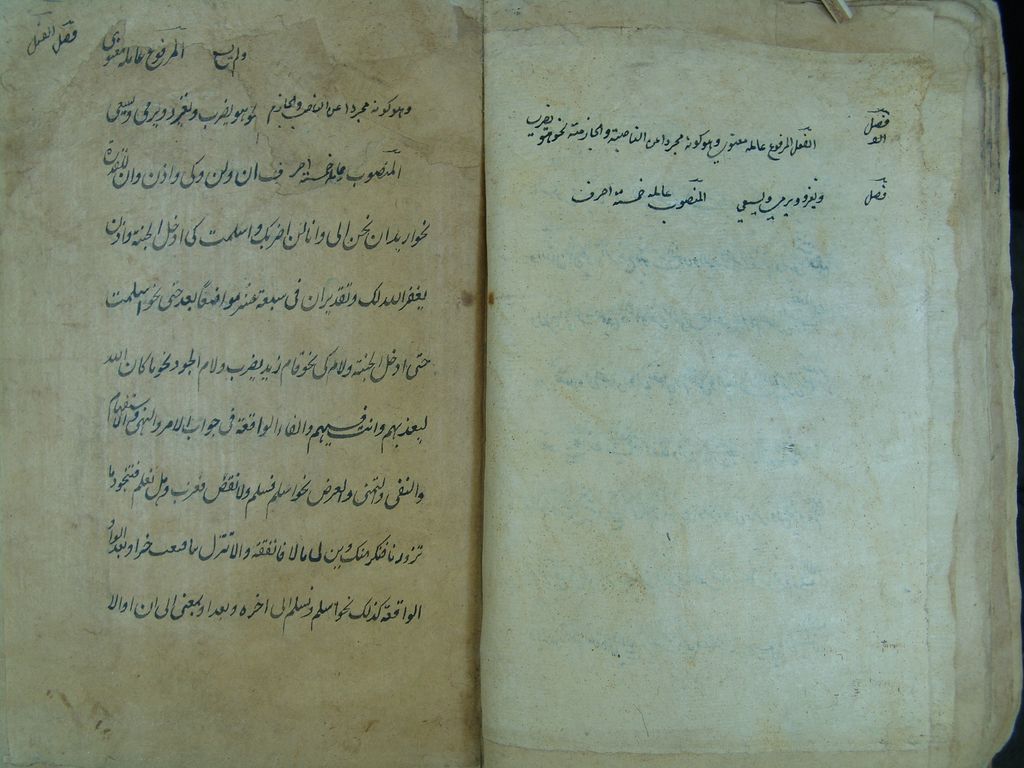 فصل الفعل المرفوع عامله معنوي وهو كونه مجردا عن الناصبة والجازمة نحو هو يضرب
فصل ويغزو ويرمي ويسعى المنصوب عامله خمسة احرف
فصل الفعل
المرفوع عامله معنوي
وهو كونه مجردا عن الناصب والجازم نحو هو يضرب ويغزو ويرمي ويسعى
المنصوب عامله خمسة احرف ان ولن وكي واذن وان المقدرة
نحو اريد ان تحسن الى وانا لن اضربك واسلمت كي ادخل الجنة واذن
يغفر الله لك وتقدير ان في سبعة عشر مواضعا بعد حتى نحو اسلمت
حتى ادخل الجنة ولام كي نحو قام زيد ليضرب ولام الجحود نحو ما كان الله
ليعذبهم وانت فيهم والفاء الواقعة في جواب الامر والنهى والاستفهام
والنفى والتمنى والعرض نحو اسلم فتسلم ولا تعص فتعذب وهل تعلم فتنجو وما
تزورنا فنكرمك وليت لى مالا فانفقه والا تنزل بنا فتصيب خيرا وبعد الواو
الواقعة كذلك نحو اسلم وتسلم الى اخره وبعد او بمعنى الى ان او الا